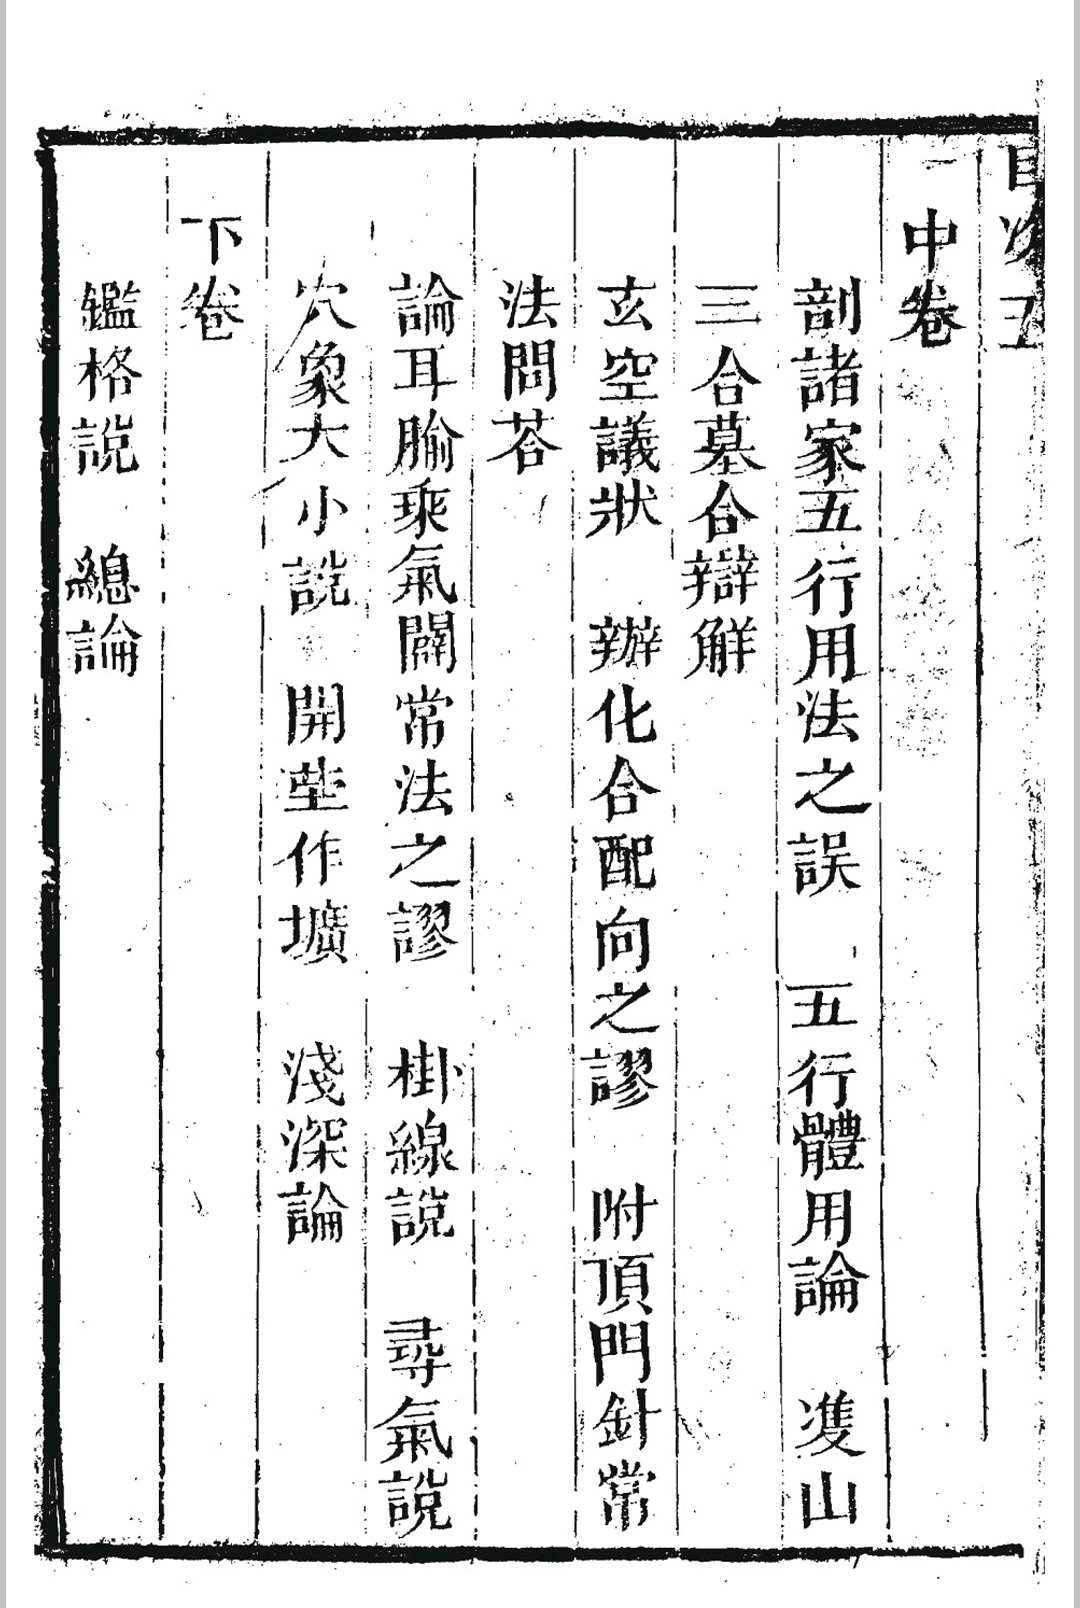 目次 五
中卷
剖諸家五行用法之誤 五行體用論 䨇山
三合墓合辯解
玄空議狀 辦化合配向之謬 附頂門針常
法問荅
論耳腧乘氣闢常法之謬 掛線說 尋氣說
穴象大小說 開塟作壙 淺深論
下卷
鑑格說 總論